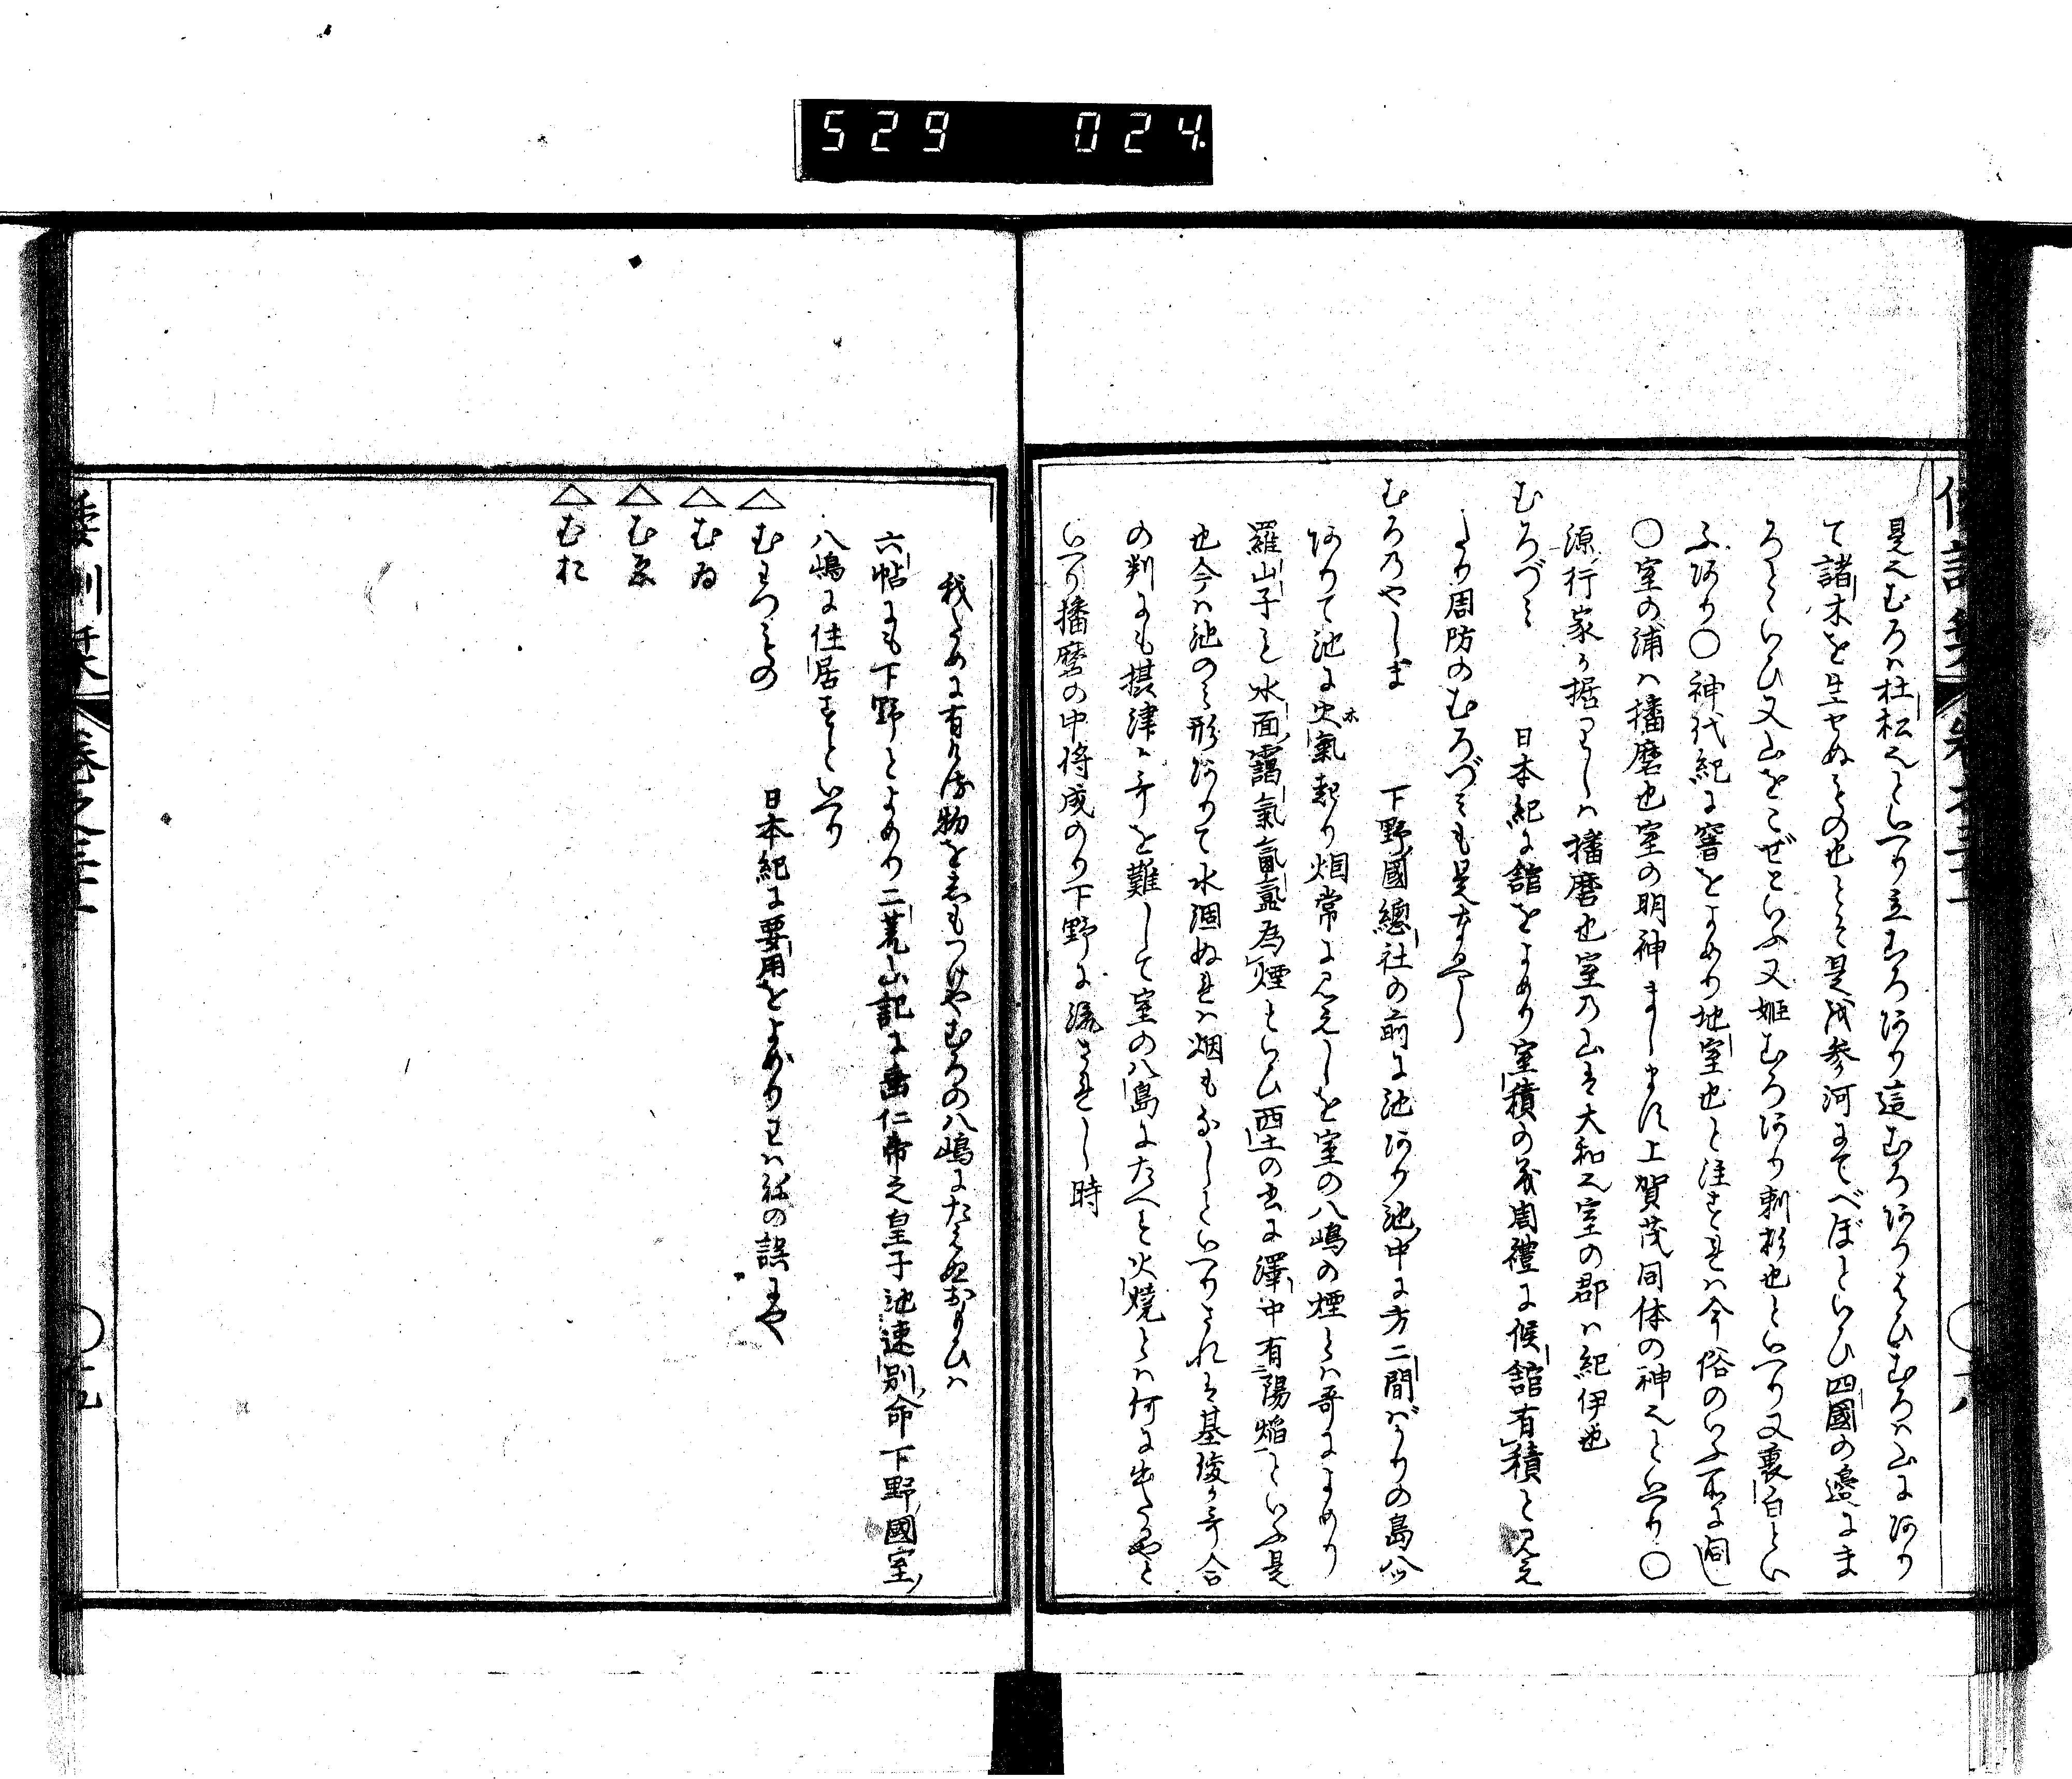 529 024
見えむろハ杜松也といへり立むろあり這むろありはひむろハ山にあり
て諸木を生せぬもの也とそ是城参河にてべぼといひ四國の邊にま
ろといひ又山をこぜといふ又姫むろあり刺杉也といへり又裏白とい
ふあり〇神代紀に窨をよめり地室也と注せれハ今俗のいふ所に同し
〇室の浦ハ播磨也室の明神まします上賀茂同体の神也といへり〇
源行家か据りしハ播磨也室乃山は大和也室の郡ハ紀伊也
むろづミ 日本紀に舘をよめり室積の義周禮に候舘有積と見え
たり周防のむろづミも是なるへし
むろのやしま 下野國總社の前に池あり池中に方二間ばかりの島八ツ
ありて池に水氣起り烟常に見えしを室の八嶋の煙とハ哥によめり
羅山子も水面靄氣氤氳為煙といひ西土の書に澤中有陽焔といふ是
也今ハ池のミ形ありて水涸ぬれハ烟もなしといへりされは基俊か哥合
の判にも摂津か哥を難して室の八島にたへも火燒とハ何に出たるやと
いへり播磨の中将成のり下野に流されし時
我ために有ける物を志もつけやむろの八嶋にたえぬおもひハ
六帖にも下野とよめり二荒山記に垂仁帝之皇子池速別命下野國室
八嶋に住居すといへり
△むわつミの 日本紀に要用をよめりわハねの誤にや
△むゐ
△むゑ
△むお
倭訓栞 巻之三十一 〇十五